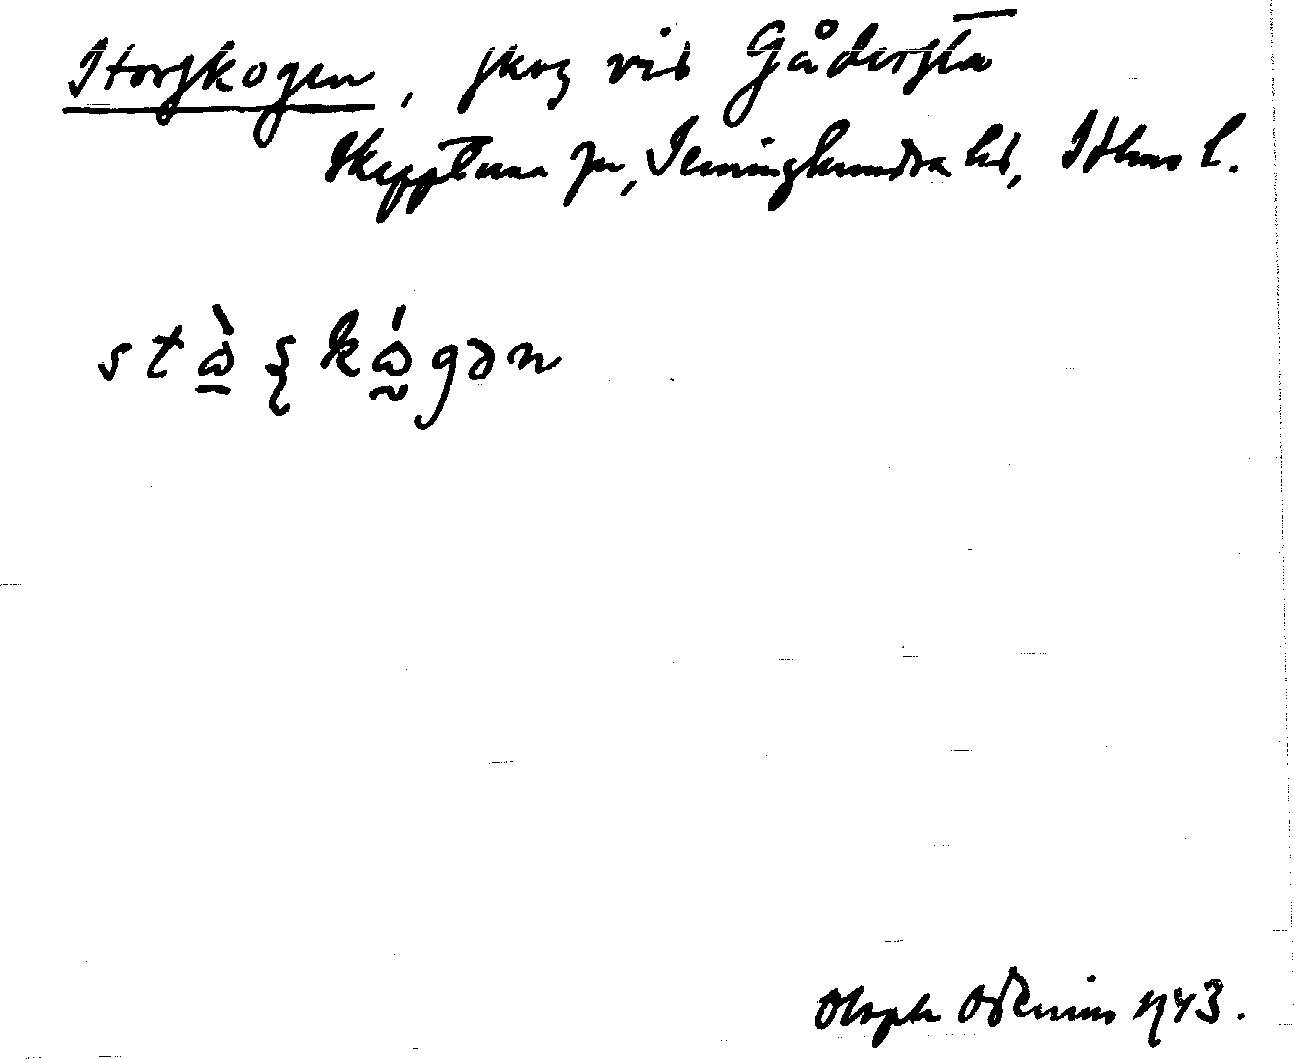 Storskogen, skog vid Gådersta
Skepptuna sn, Seminghundra hd, Sthms l.
stὼ̲ʂkώ̰gən
Oloph Odenius 1943.